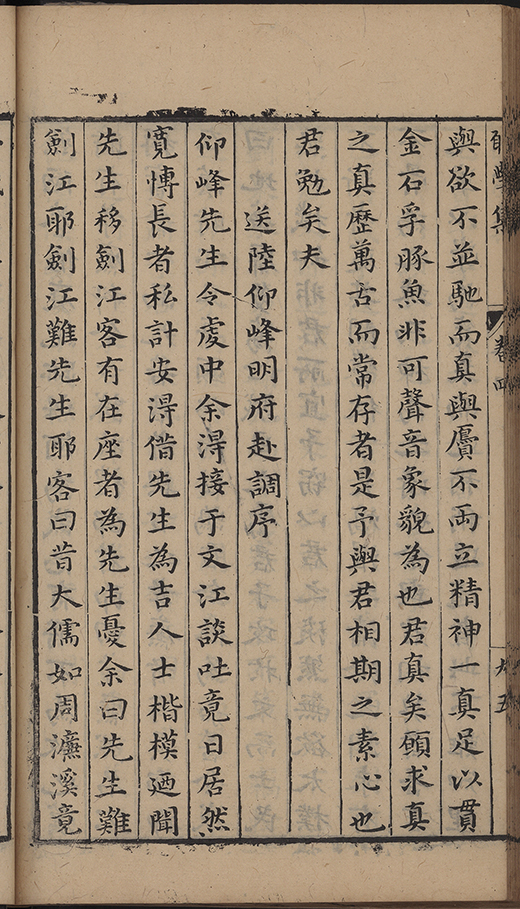 學集 卷四
與欲不並馳而真與贗不両立精神一真足以貫
金石孚豚魚非可聲音象貌為也君真矣願求真
之真歷萬古而常存者是予與君相期之素心也
君勉矣夫
送陸仰峰明府赴調序
仰峰先生令虔中余淂接于文江談吐竟日居然
寬愽長者私計安淂借先生為吉人士楷模廼聞
先生移劍江客有在座者為先生憂余曰先生難
劍江耶劍江難先生耶客曰昔大儒如周濂溪竟